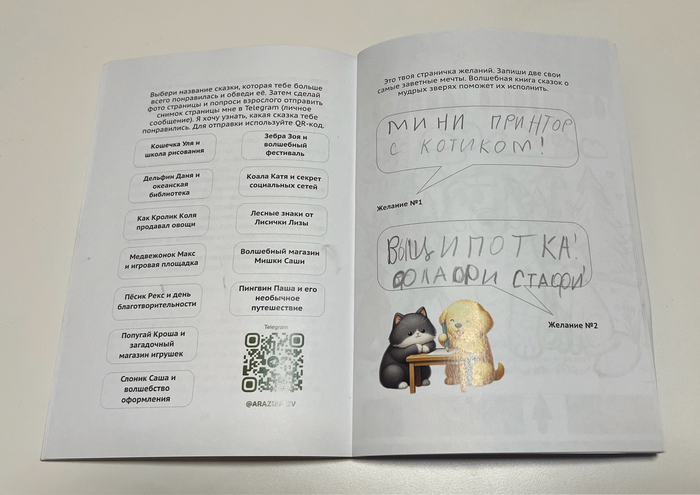 Выбери название сказки, которая тебе больше
всего понравилась и обведи её. Затем сделай
фото страницы и попроси взрослого отправить
снимок страницы мне в Telegram (личное
сообщение). Я хочу узнать, какая сказка тебе
понравились. Для отправки используйте QR-код.
Кошечка Уля и
школа рисования
Дельфин Даня и
океанская
библиотека
Как Кролик Коля
продавал овощи
Медвежонок Макс
и игровая площадка
Пёсик Рекс и день
благотворительности
Попугай Кроша и
загадочный
магазин игрушек
Слоник Саша и
волшебство
оформления
Зебра Зоя и
волшебный
фестиваль
Коала Катя и секрет
социальных сетей
Лесные знаки от
Лисички Лизы
Волшебный магазин
Мишки Саши
Пингвин Паша и его
необычное
путешествие
Telegram
Это твоя страничка желаний. Запиши две свои
самые заветные мечты. Волшебная книга сказок о
мудрых зверях поможет их исполнить.
МИНИ ПРИНТОР
С КОТИКОМ!
Желание №1
ВЫЩИПОТКА!
СТАФФИ
Желание №2